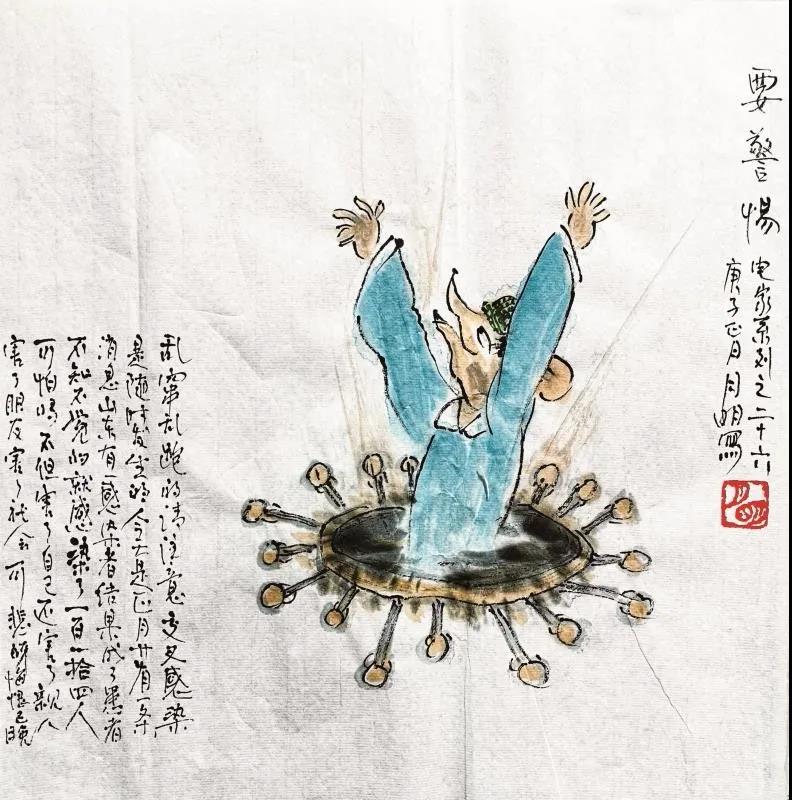 要警惕
宅家系列之二十六
庚子正月月明寫
乱窜乱跑的请注意交叉感染
是随时发生的今天是正月廿有一条
消息山东有一感染者结果成了愚者
不知不觉的就感染了一百一拾四人
可怕吗不但害了自己还害了亲人
害了朋友害了社会可悲啊悔恨已晚